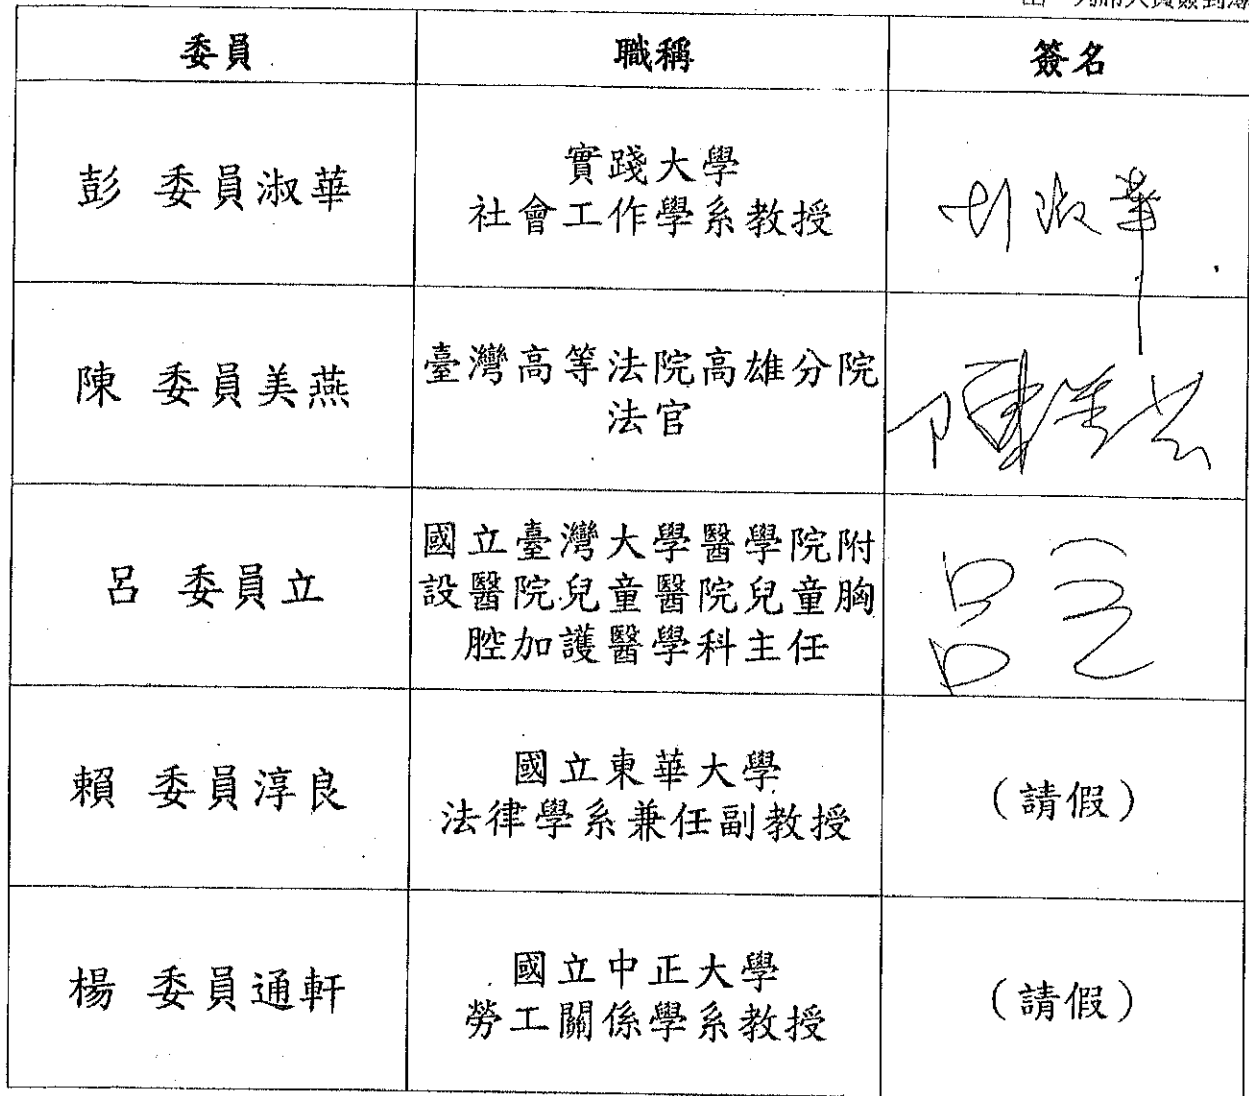 列席人員簽到簿
委員 職稱 簽名
彭 委員淑華
實踐大學
社會工作學系教授
彭淑華
陳 委員美燕
臺灣高等法院高雄分院
法官
陳美燕
呂 委員立
國立臺灣大學醫學院附
設醫院兒童醫院兒童胸
腔加護醫學科主任
呂立
賴 委員淳良
國立東華大學
法律學系兼任副教授
(請假)
楊 委員通軒
國立中正大學
勞工關係學系教授
(請假)